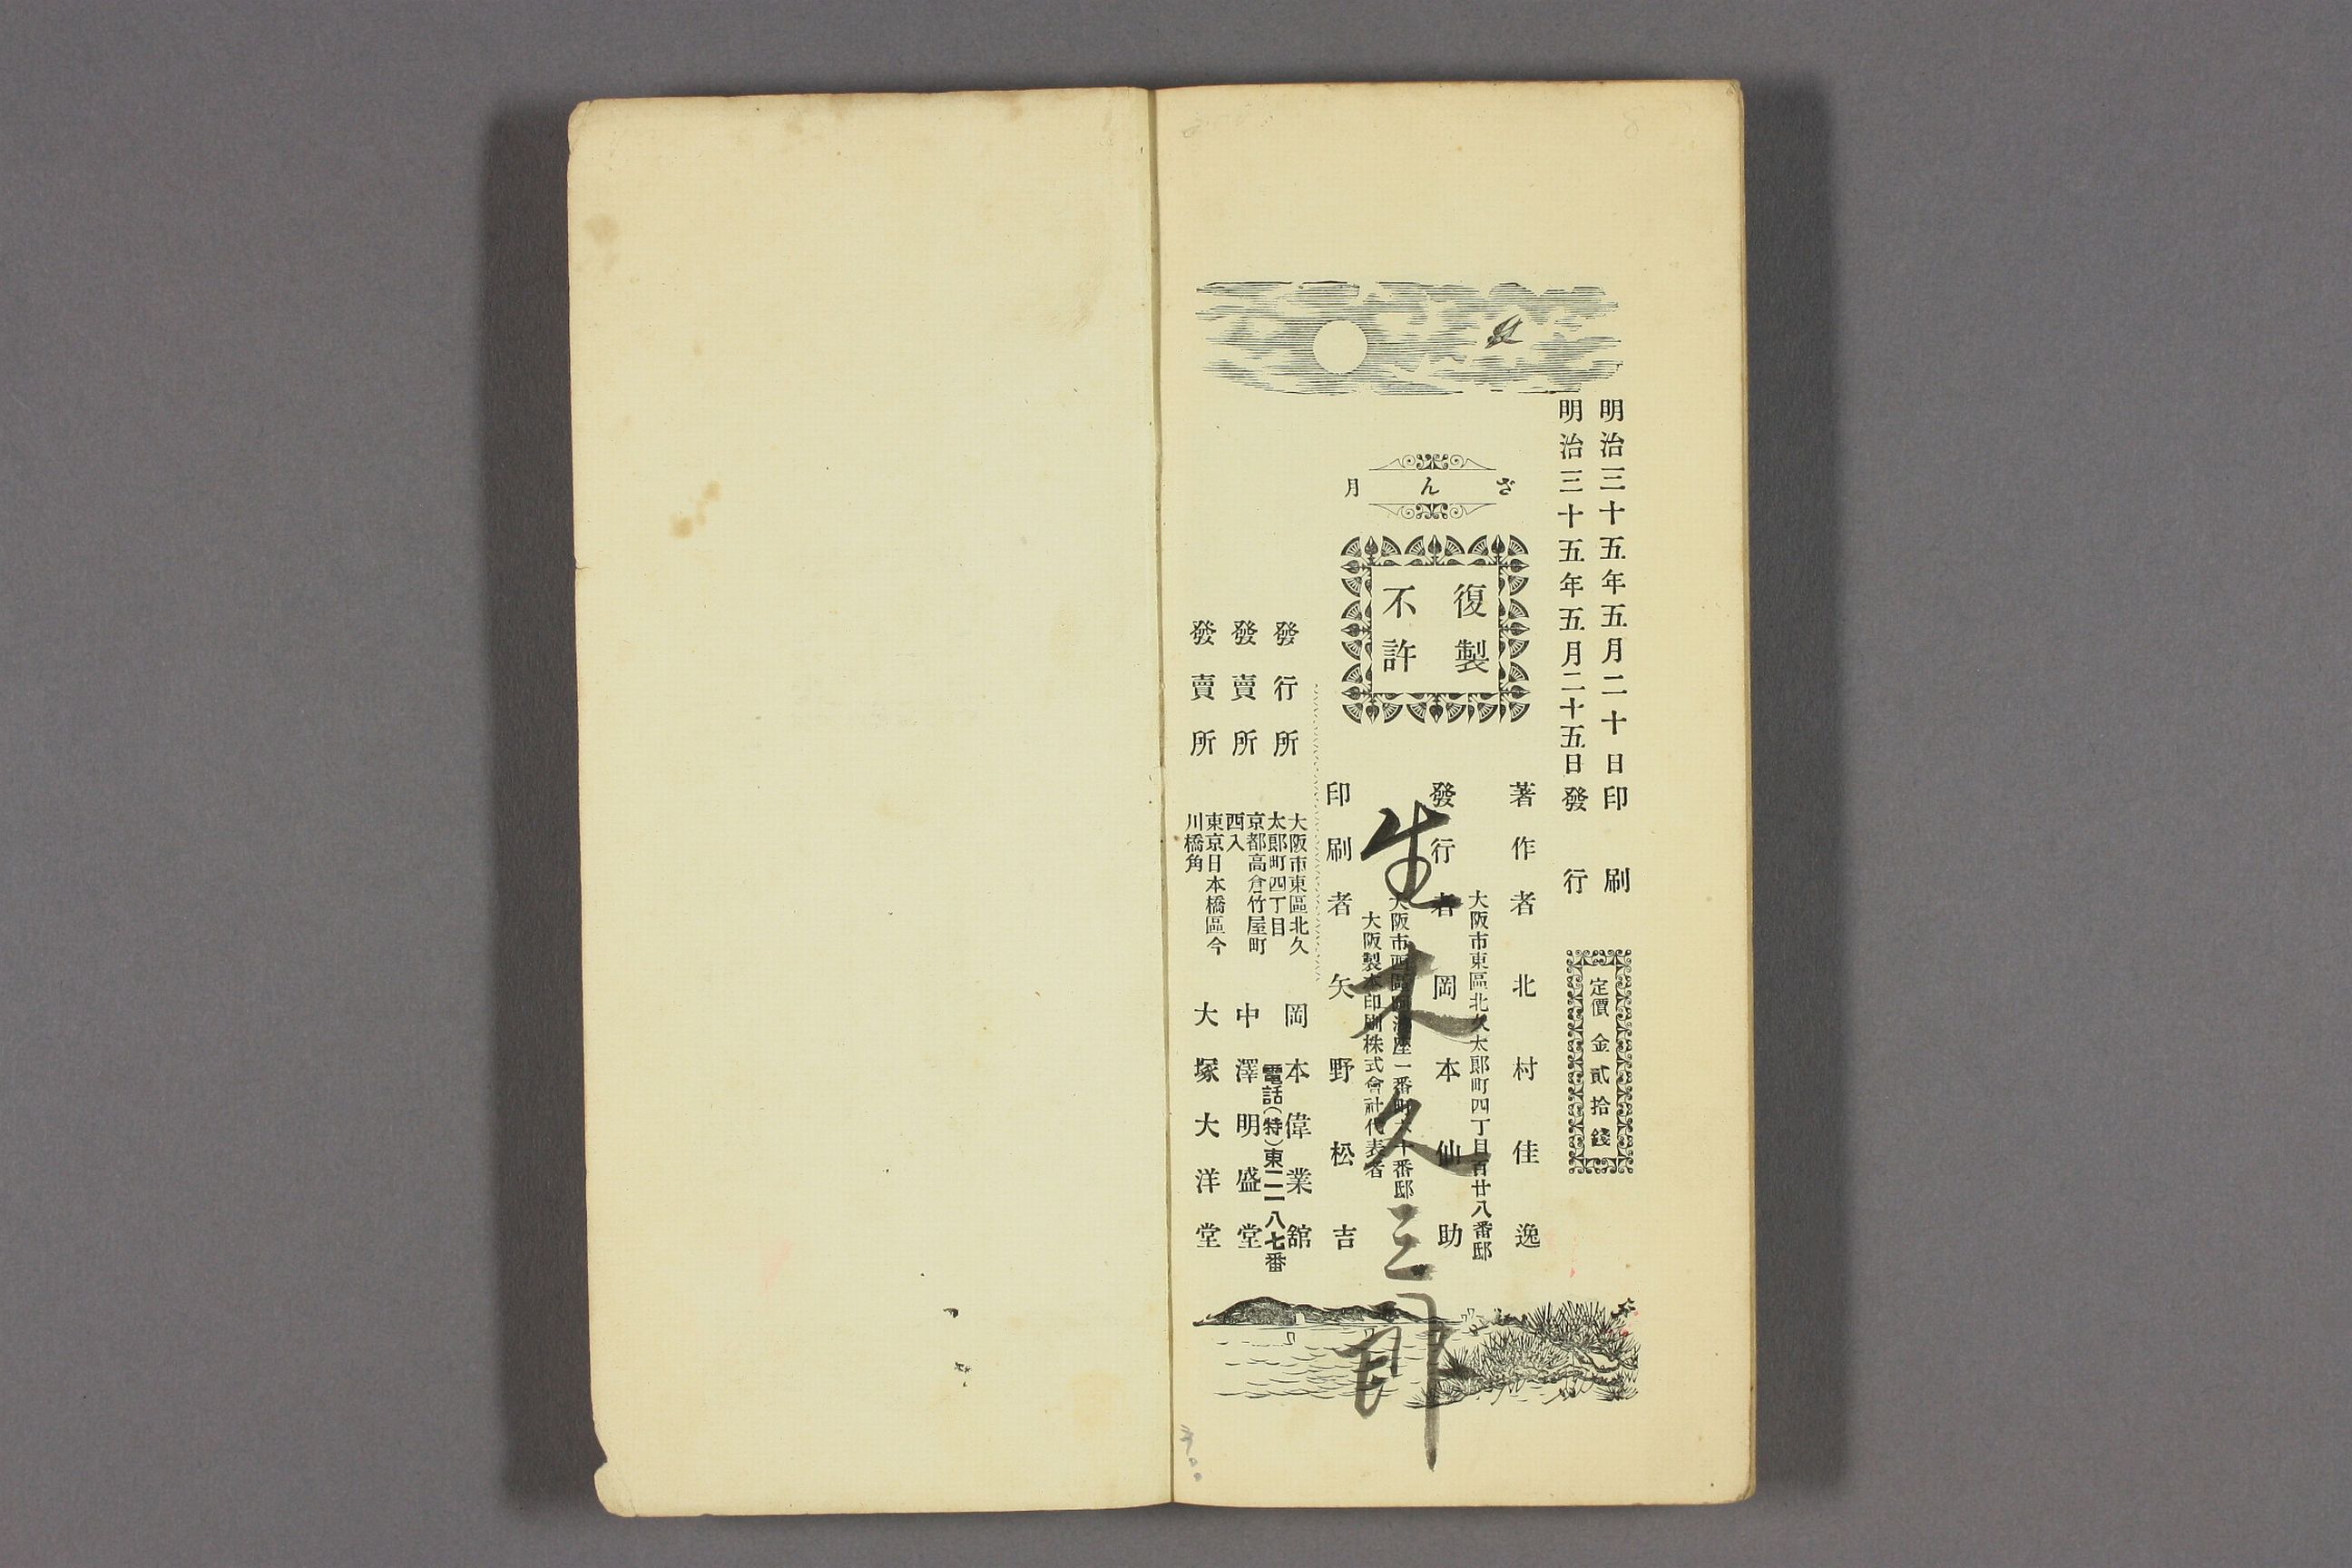 明治三十五年五月二十日印刷
明治三十五年五月二十五日發行
定價金貳拾錢
ざん月
復製
不許
著作者 北村佳逸
大阪市東區北久太郎町四丁目百廿八番邸
發行者 岡本仙助
大阪市西區
一番
十番邸
大阪製本印刷株式會社代表者
印刷者 矢野松吉
生木久三郎
大阪市東區北久
太郎町四丁目
發行所 岡本偉業館
電話(特)東二一八七番
京都高倉竹屋町
西入
發賣所 中澤明盛堂
東京日本橋區今
川橋角
發賣所 大塚大洋堂